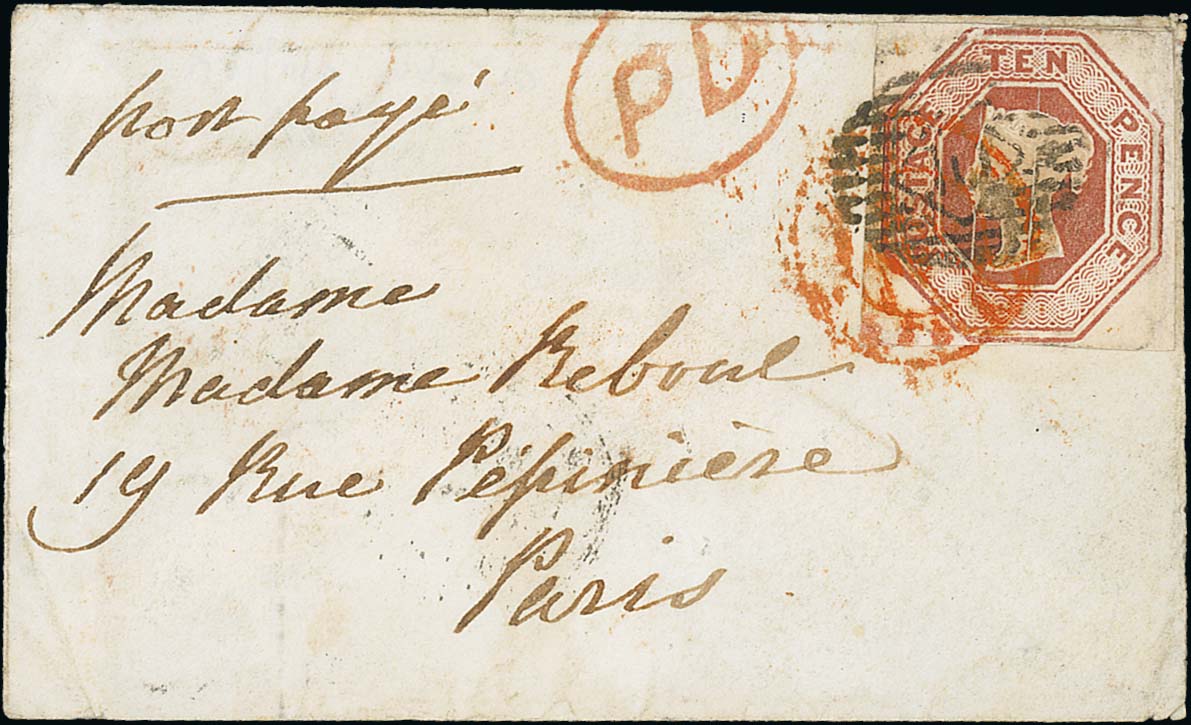 port payé
PD
TEN PENCE
POSTAGE
Madame
Madame Reboul
19 Rue Pépinière
Paris